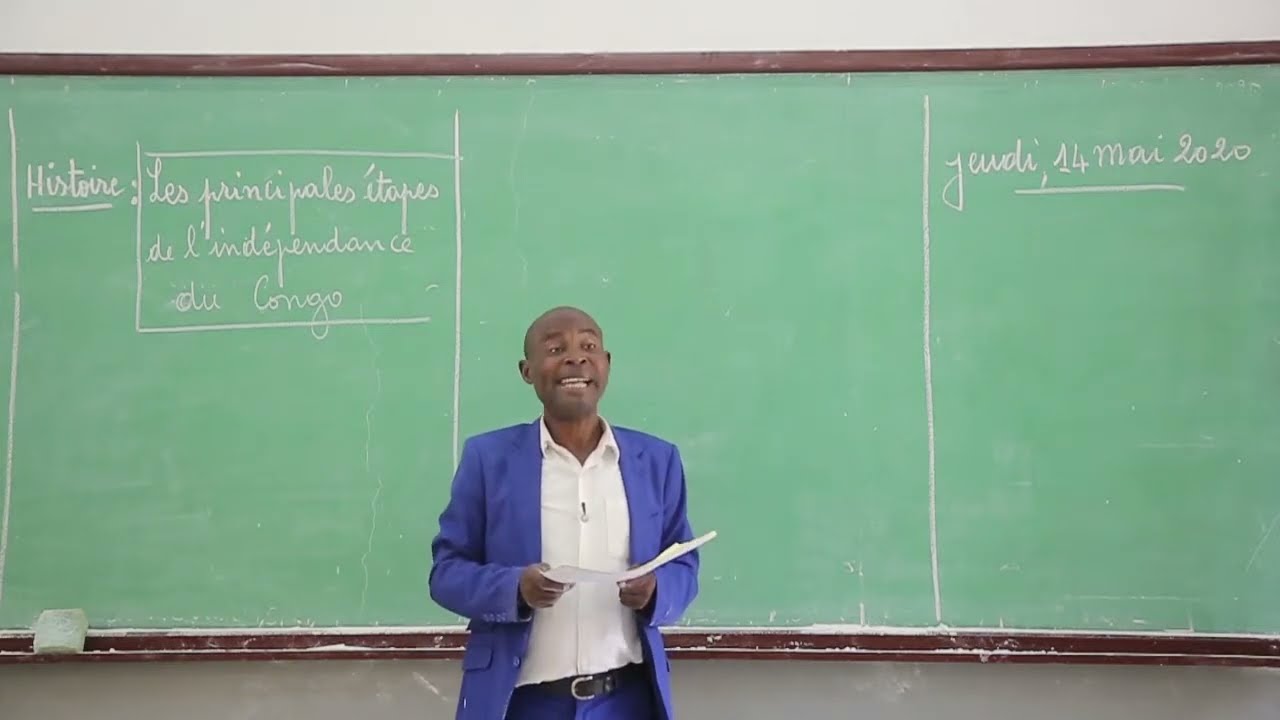 Histoire : Les principales étapes
de l'indépendance
du Congo
jeudi, 14 Mai 2020